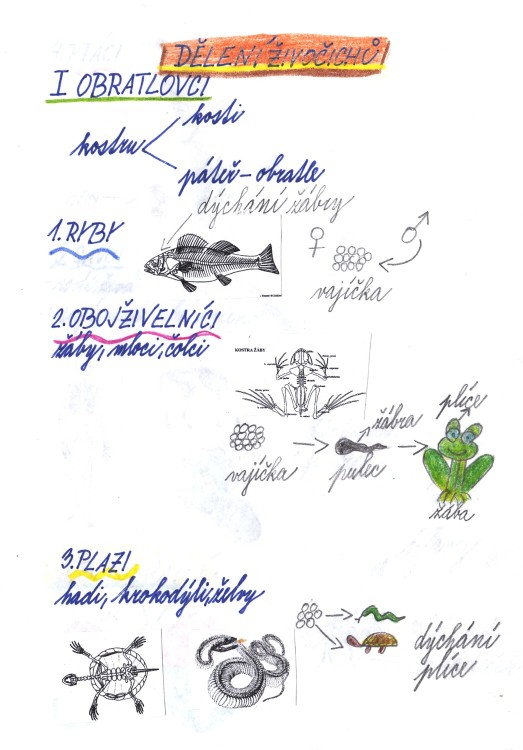 DĚLENÍ ŽIVOČICHŮ
I OBRATLOVCI
kosti
kostru
páteř - obratle
dýchání žábry
1. RYBY
vajíčka
2. OBOJŽIVELNÍCI
žáby, mloci, čolci
KOSTRA ŽÁBY
plíce
žábra
vajíčka
pulec
žába
3. PLAZI
hadi, krokodýli, želvy
dýchání
plíce